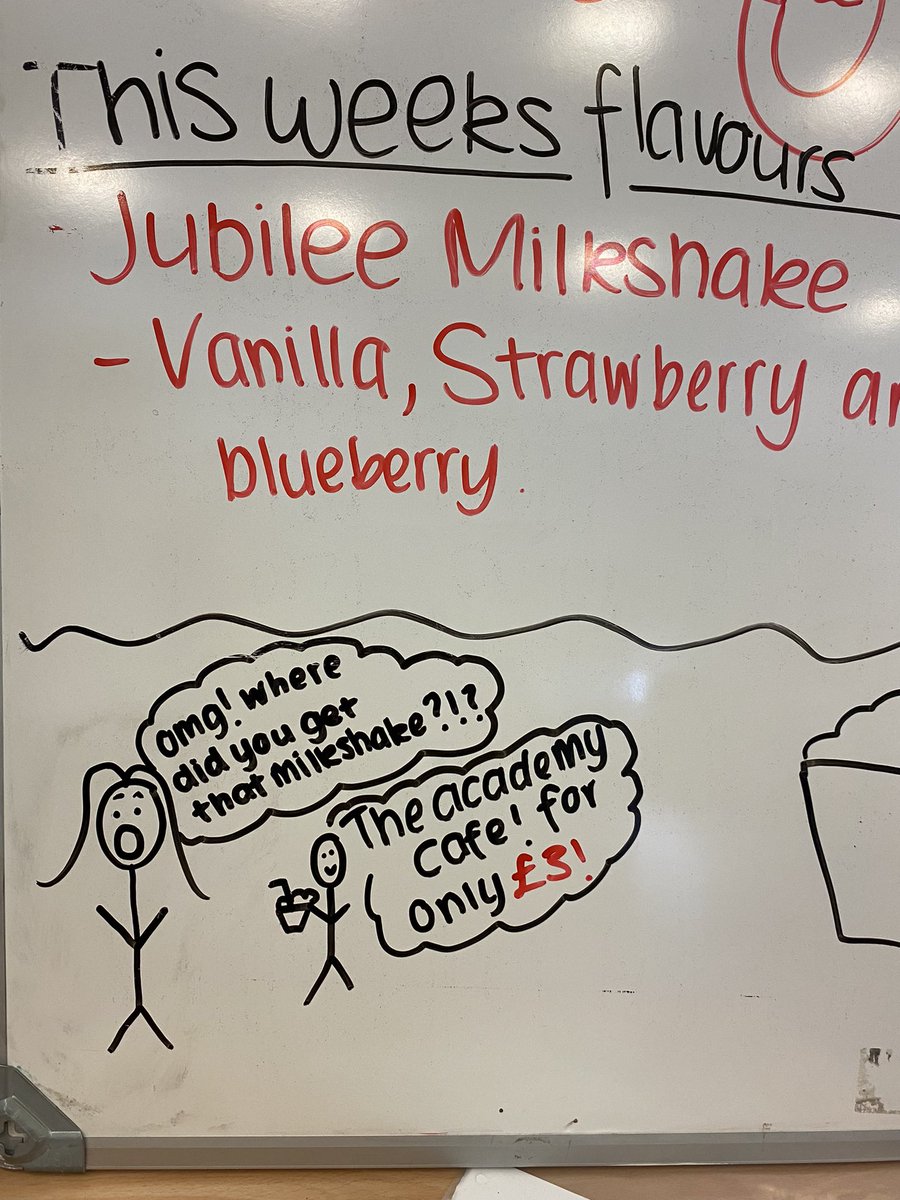 This weeks flavours
- Jubilee Milkshake
- Vanilla, Strawberry
blueberry.
omg! where
did you get
that milkshake?!?
The academy
cafe! for
only £3!